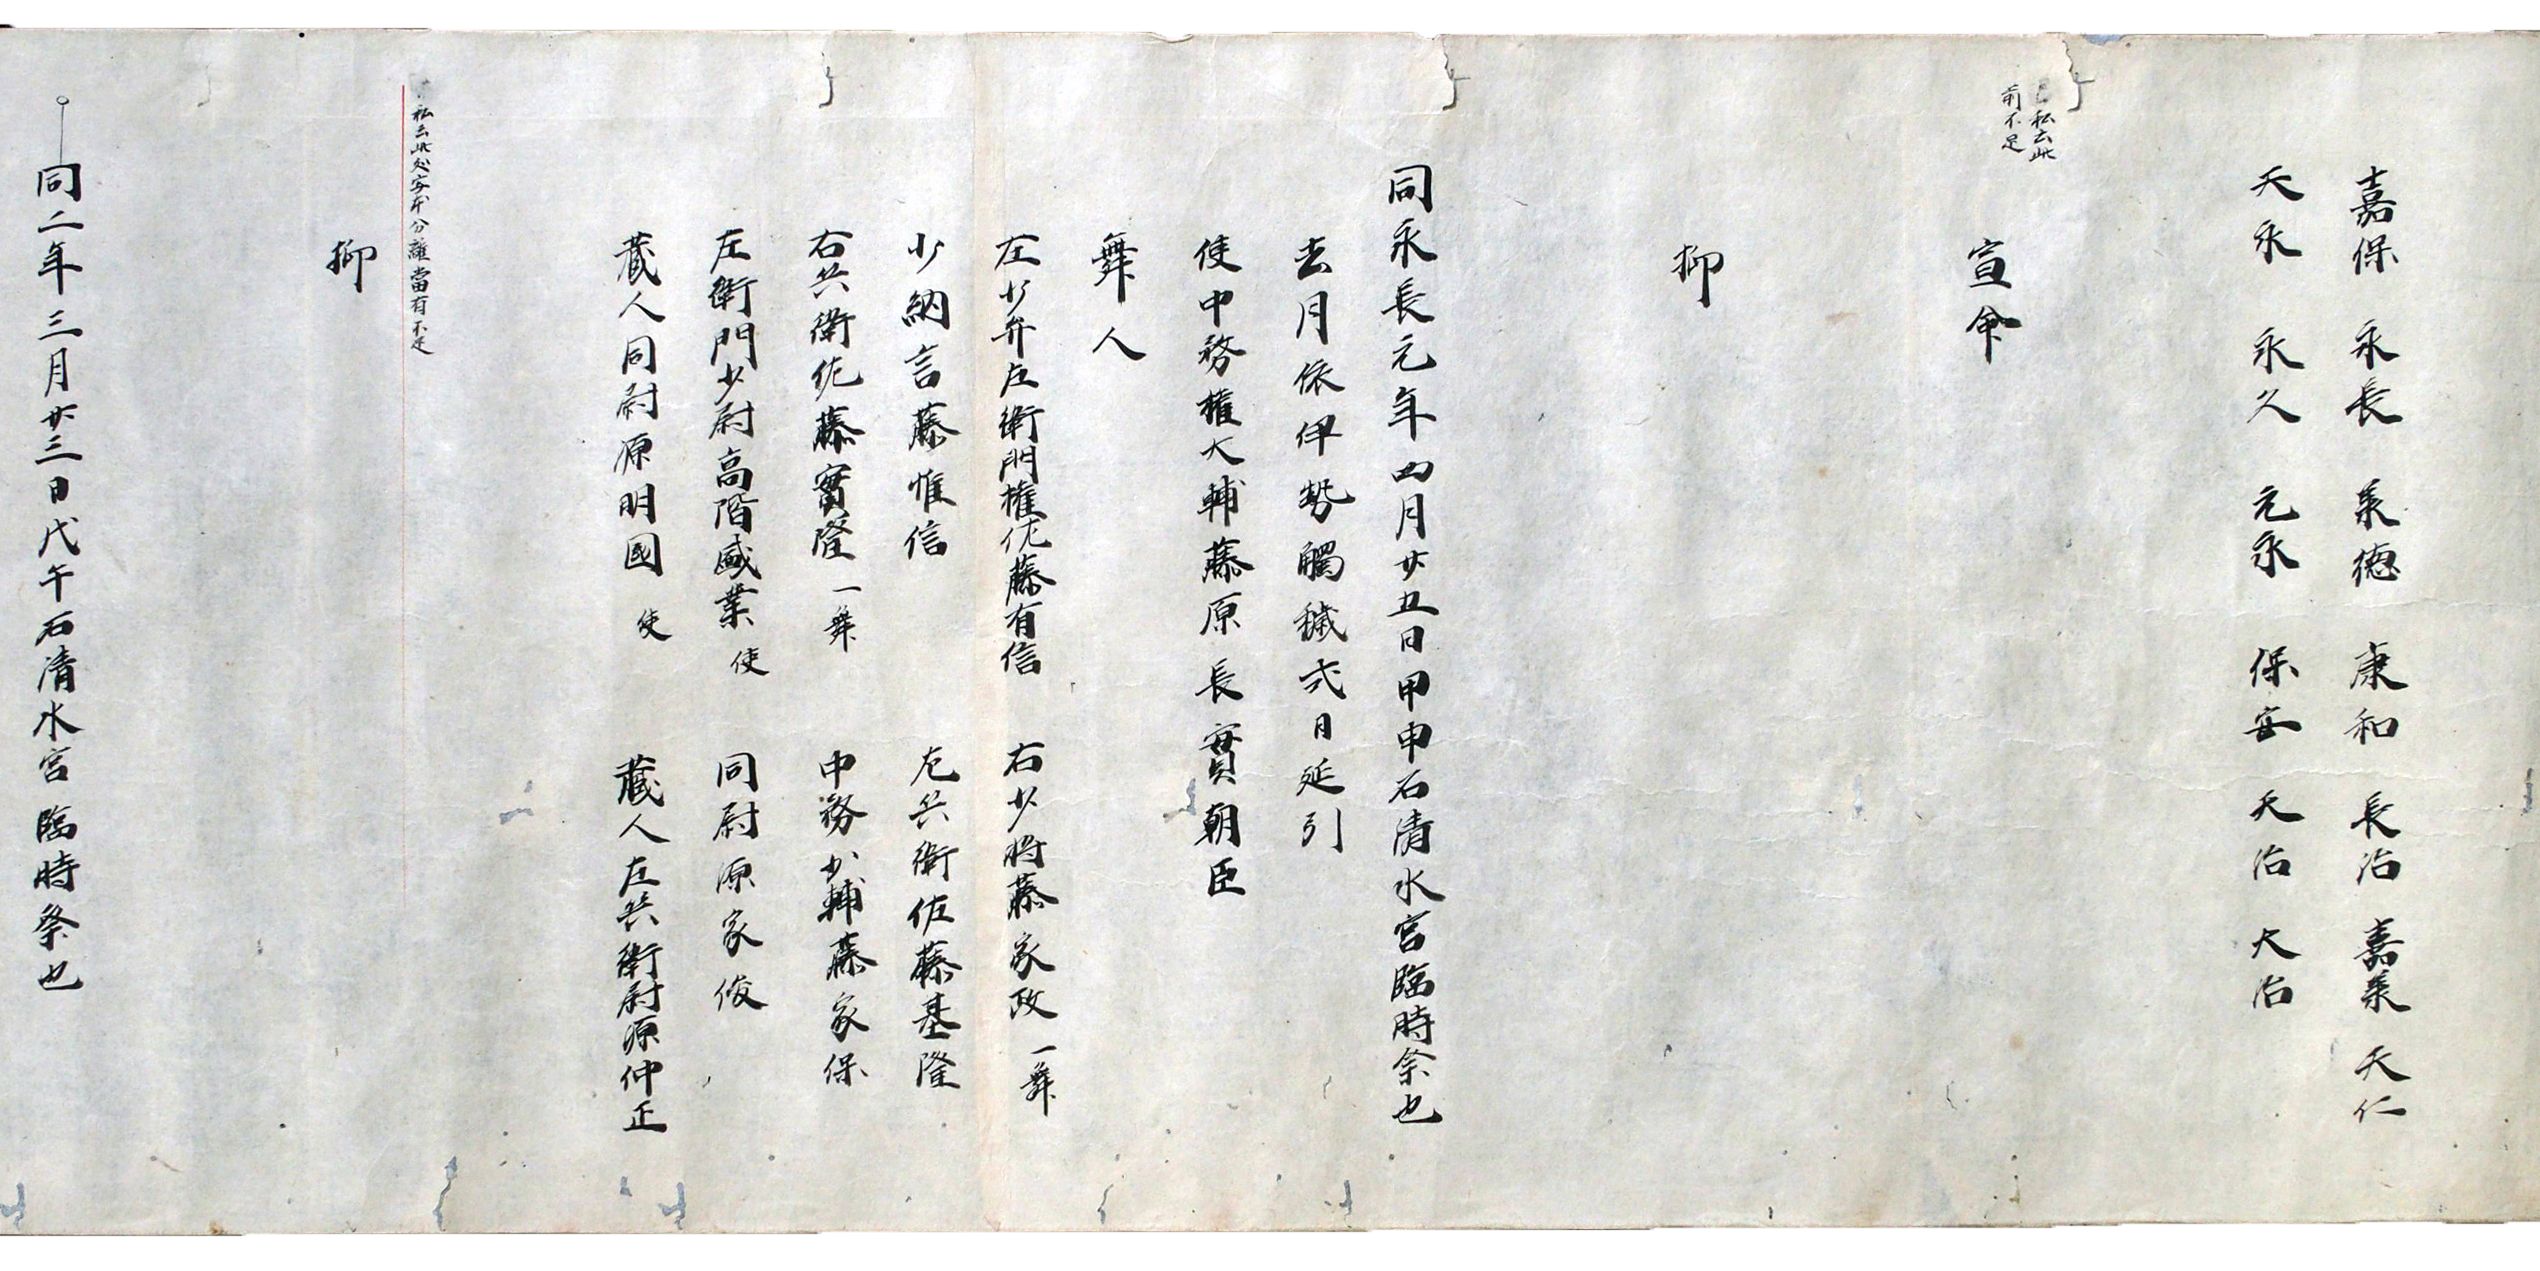 嘉保 永長 承德 康和 長治 嘉承 天仁
天永 永久 元永 保安 天治 大治
私云此
前不足
宣命
抑
同永長元年四月廿五日甲申石清水宮臨時祭也
去月依伊勢觸穢式日延引
使中務權大輔藤原長實朝臣
舞人
左少弁左衛門權佐藤有信 右少將藤家政 一舞
少納言藤惟信 左兵衛佐藤基隆
右兵衛佐藤實隆 一舞 中務少輔藤家保
左衛門少尉高階盛業 使 同尉源家俊
蔵人同尉源明國 使 蔵人左兵衛尉源仲正
私云此処字分離當有不足
抑
同二年三月廿三日戊午石清水宮臨時祭也